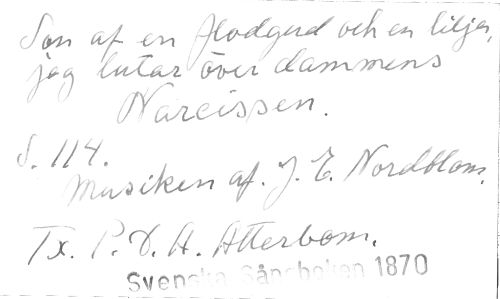 Son af en flodgud och en lilja,
jag lutar över dammens
Narcissen.
S. 114.
Musiken af. J. E. Nordblom.
Tx. P. D. A. Atterbom.
Svenska Sångboken 1870